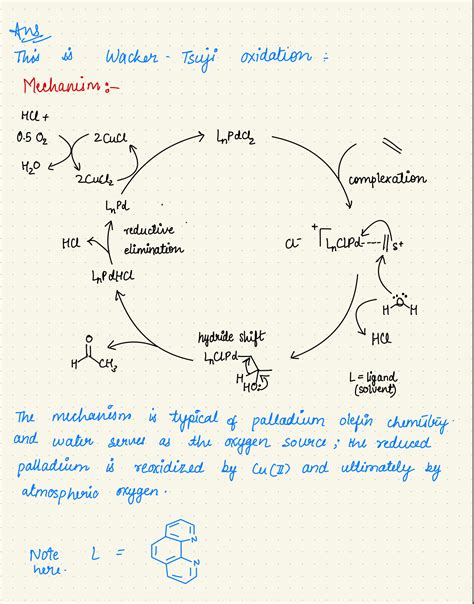 Ans
This is Wacker - Tsuji oxidation :-
Mechanism :-
HCl +
0.5 O₂
2CuCl
LₙPdCl₂
H₂O
2CuCl₂
complexation
LₙPd
HCl
reductive
elimination
Cl⁻
+
LₙClPd
δ+
LₙPdHCl
H
O
H
HCl
hydride shift
LₙClPd
O
H
CH₃
H
HO:
L = ligand
(solvent)
The mechanism is typical of palladium olefin chemistry
and water serves as the oxygen source ; the reduced
palladium is reoxidized by Cu(II) and ultimately by
atmospheric oxygen .
Note L =
here .
N
N